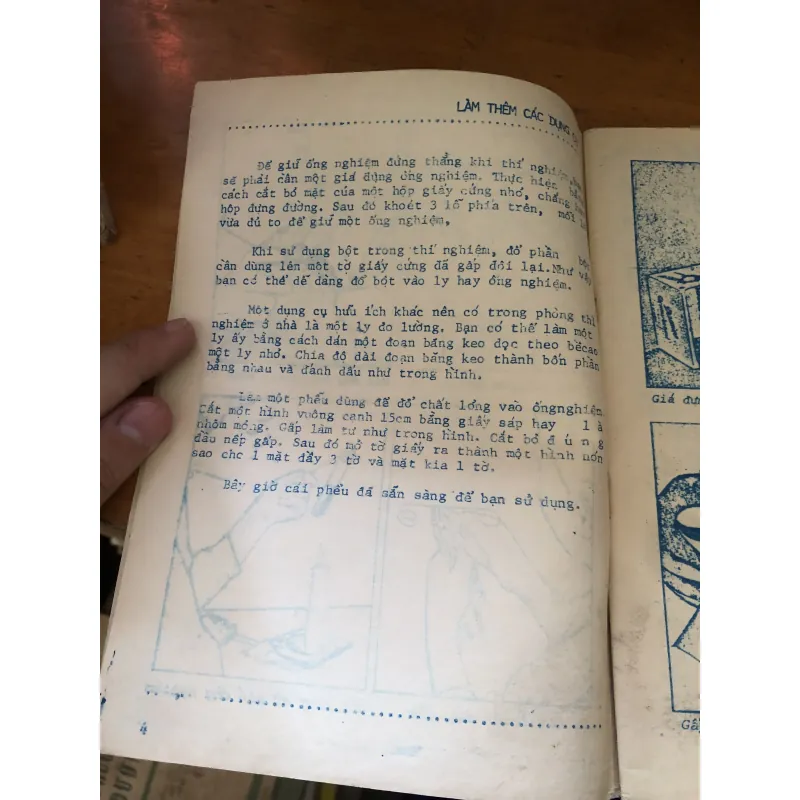 LÀM THÊM CÁC DỤNG
Để giữ ống nghiệm đứng thẳng khi thí nghiệm
sẽ phải cần một giá đựng ống nghiệm. Thực hiện bằng
cách cắt bỏ mặt của một hộp giấy cứng nhỏ, chẳng
hộp đựng đường. Sau đó khoét 3 lỗ phía trên, mỗi
vừa đủ to để giữ một ống nghiệm,
Khi sử dụng bột trong thí nghiệm, đổ phần bột
cần dùng lên một tờ giấy cứng đã gấp đôi lại.Như vậy
bạn có thể dễ dàng đổ bột vào ly hay ống nghiệm.
Một dụng cụ hữu ích khác nên có trong phòng thí
nghiệm ở nhà là một ly đo lường. Bạn có thể làm một
ly ấy bằng cách dán một đoạn băng keo dọc theo bềcao
một ly nhỏ. Chia độ dài đoạn băng keo thành bốn phần
bằng nhau và đánh dấu như trong hình.
Làm một phểu dùng để đổ chất lỏng vào ốngnghiệm
Cắt một hình vuông cạnh 15cm bằng giấy sáp hay lá
nhôm mỏng. Gấp làm tư như trong hình. Cắt bỏ đúng
đầu nếp gấp. Sau đó mở tờ giấy ra thành một hình nón
sao cho 1 mặt dầy 3 tờ và mặt kia 1 tờ.
Bây giờ cái phểu đã sẵn sàng để bạn sử dụng.
4
Giá đựn
Gấ